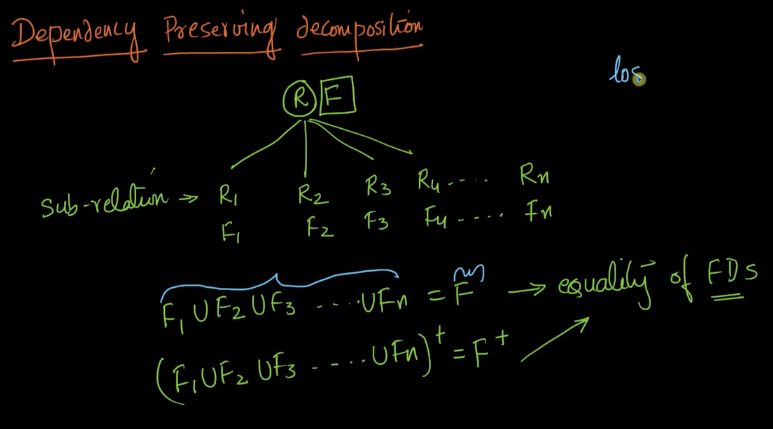 Dependency Preserving decomposition
los
R F
sub-relation → R₁ R₂ R₃ R₄ .... Rn
F₁ F₂ F₃ F₄ ..... Fn
F₁UF₂UF₃ .....UFn = F → equality of FDs
(F₁UF₂UF₃ .....UFn)⁺ = F⁺